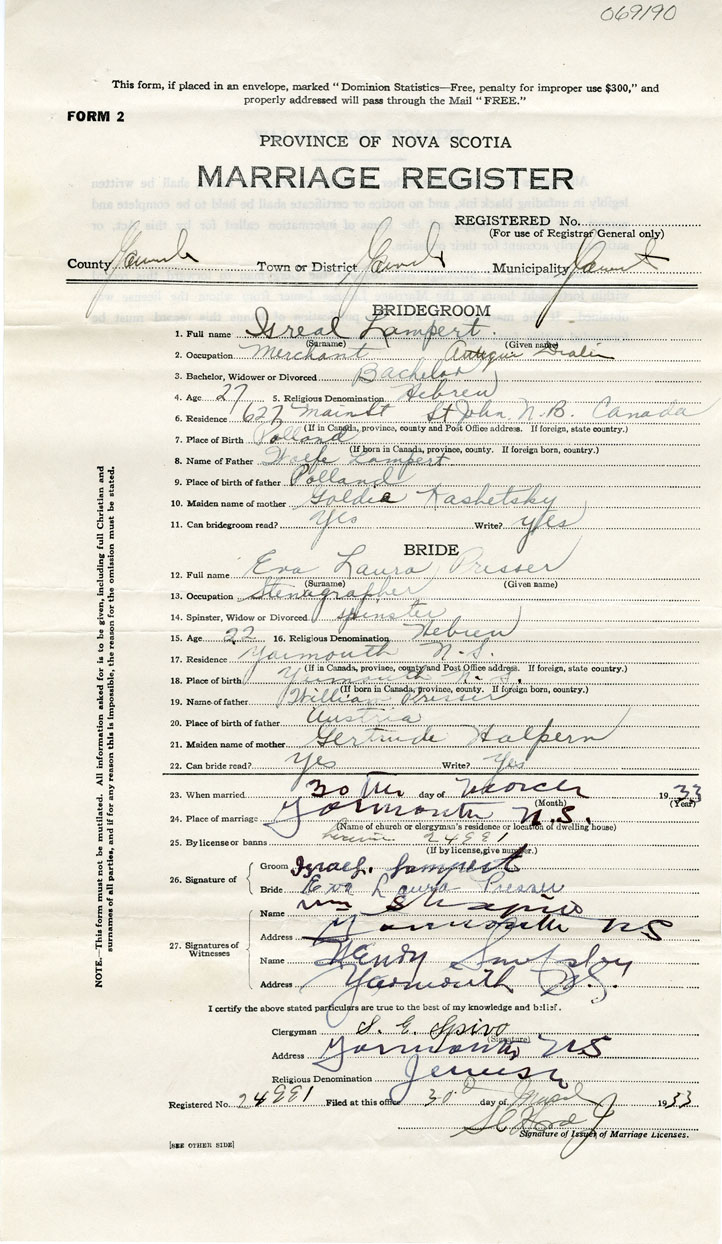 069190
This form, if placed in an envelope, marked "Dominion Statistics—Free, penalty for improper use $300," and
properly addressed will pass through the Mail "FREE."
FORM 2
PROVINCE OF NOVA SCOTIA
MARRIAGE REGISTER
REGISTERED No.
(For use of Registrar General only)
County Town or District Municipality
BRIDEGROOM
1. Full name Isreal Lampert.
(Surname) (Given name)
2. Occupation Merchant Antique
3. Bachelor, Widower or Divorced Bachelor
4. Age 27 5. Religious Denomination Hebrew
6. Residence 627 Main St St John, N.B. Canada
(If in Canada, province, county and Post Office address. If foreign, state country.)
7. Place of Birth Polland
(If born in Canada, province, county. If foreign born, country.)
8. Name of Father Wolfe Lampert
9. Place of birth of father Polland
10. Maiden name of mother Goldie Kashetsky
11. Can bridegroom read? Yes Write? yes
BRIDE
12. Full name Eva Laura Presser
(Surname) (Given name)
13. Occupation Stenographer
14. Spinster, Widow or Divorced spinster
15. Age 22 16. Religious Denomination Hebrew
17. Residence Yarmouth N.S.
(If in Canada, province, county and Post Office address. If foreign, state country.)
18. Place of birth Yarmouth N.S.
(If born in Canada, province, county. If foreign born, country.)
19. Name of father William Presser
20. Place of birth of father Austria
21. Maiden name of mother Gertrude Halpern
22. Can bride read? Yes Write? Yes
23. When married 30th day of March 1933
(Month) (Year)
24. Place of marriage Yarmouth N.S.
(Name of church or clergyman's residence or location of dwelling house)
25. By license or banns 24991
(If by license, give number.)
26. Signature of
Groom Israel Lampert
Bride Eva Laura Presser
27. Signatures of Witnesses
Name Wm Shapiro
Address Yarmouth NS
Name Henry
Address Yarmouth N.S.
I certify the above stated particulars are true to the best of my knowledge and belief.
Clergyman S. E. Spivo
(Signature)
Address Yarmouth NS
Religious Denomination Jewish
Registered No. 24991 Filed at this office 30 day of 1933
Signature of Issuer of Marriage Licenses.
[SEE OTHER SIDE]
NOTE.—This form must not be mutilated. All information asked for is to be given, including full Christian and
surnames of all parties, and if for any reason this is impossible, the reason for the omission must be stated.